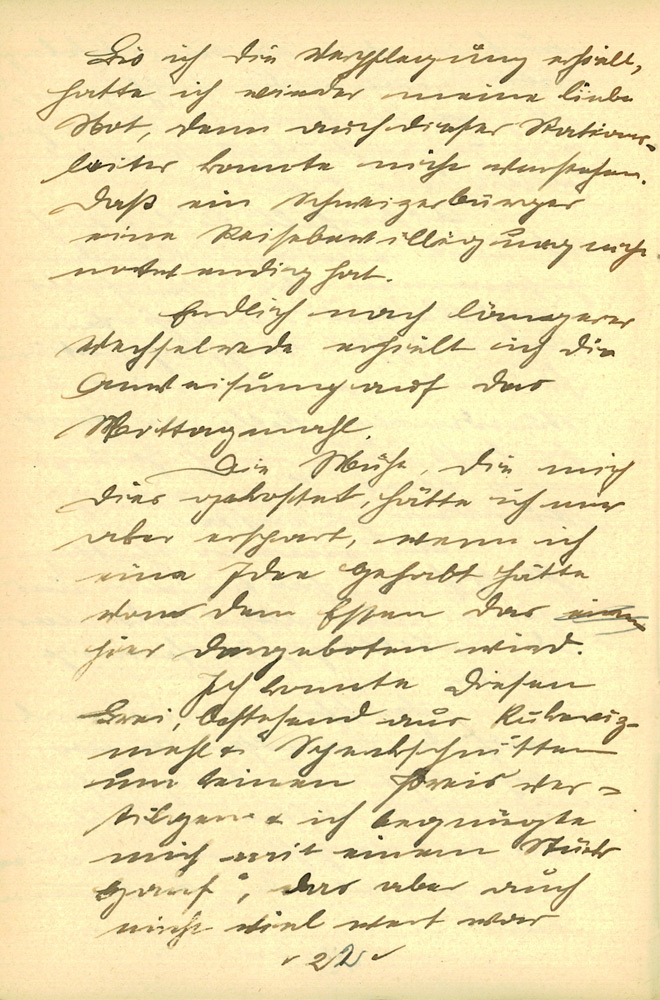 Bis ich die Verpflegung erhielt,
hatte ich wieder meine liebe
Not, denn auch dieser Stations-
leiter konnte nicht verstehen,
daß ein Schweizerbürger
eine Reisebewilligung nicht
notwendig hat.
Endlich nach längerer
Wechselrede erhielt ich die
Anweisung auf das
Mittagmahl.
Die Mühe, die mich
dies gekostet, hätte ich mir
aber erspart, wenn ich
eine Idee gehabt hätte
von dem Essen das
hier dargeboten wird.
Ich konnte diesen
Brei, bestehend aus
mehl & Speckschnitten
um keinen Preis ver-
tilgen & ich begnügte
mich mit einem Stück
das aber auch
nicht viel wert war
22